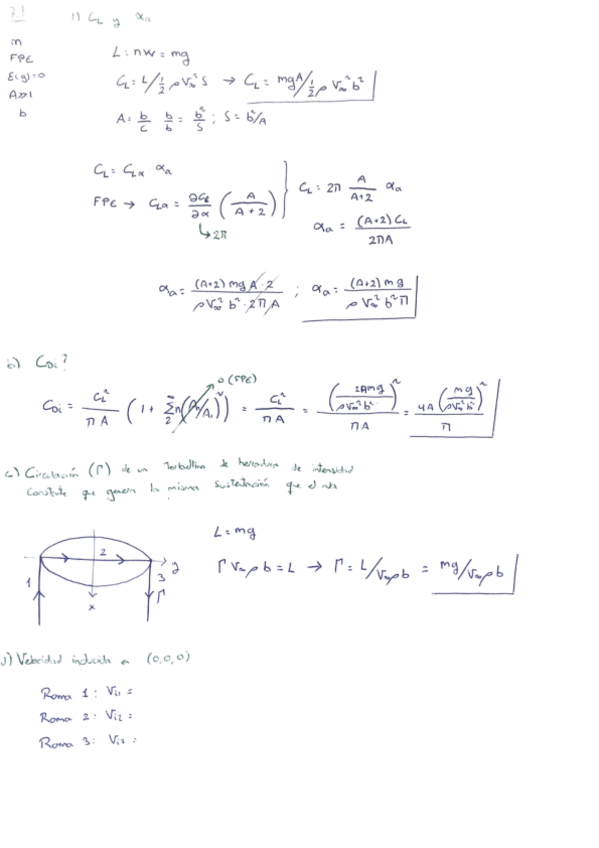 7.1
1) CL y αa
m
FPE
ε(y)=0
A≫1
b
L = nW = mg
CL = L/½ρV∞²S → CL = mgA/½ρV∞²b²
A = b/c b/b = b²/S ; S = b²/A
CL = CLα αa
FPE → CLα = ∂Cl/∂α (A/(A+2))
↳ 2π
CL = 2π A/(A+2) αa
αa = (A+2)CL/2πA
αa = (A+2)mgA·2/ρV∞²b²·2πA ; αa = (A+2)mg/ρV∞²b²π
b) CDi?
CDi = CL²/πA (1 + Σ₂^∞ n(An/A1)²) = CL²/πA = (2Amg/ρV∞²b²)²/πA = 4A(mg/ρV∞²b²)²/π
0 (FPE)
c) Circulación (Γ) de un torbellino de herradura de intensidad
constante que genera la misma sustentación que el ala
L = mg
ΓV∞ρb = L → Γ = L/V∞ρb = mg/V∞ρb
1
2
3
y
x
Γ
d) Velocidad inducida en (0,0,0)
Rama 1: Vi1 =
Rama 2: Vi2 =
Rama 3: Vi3 :